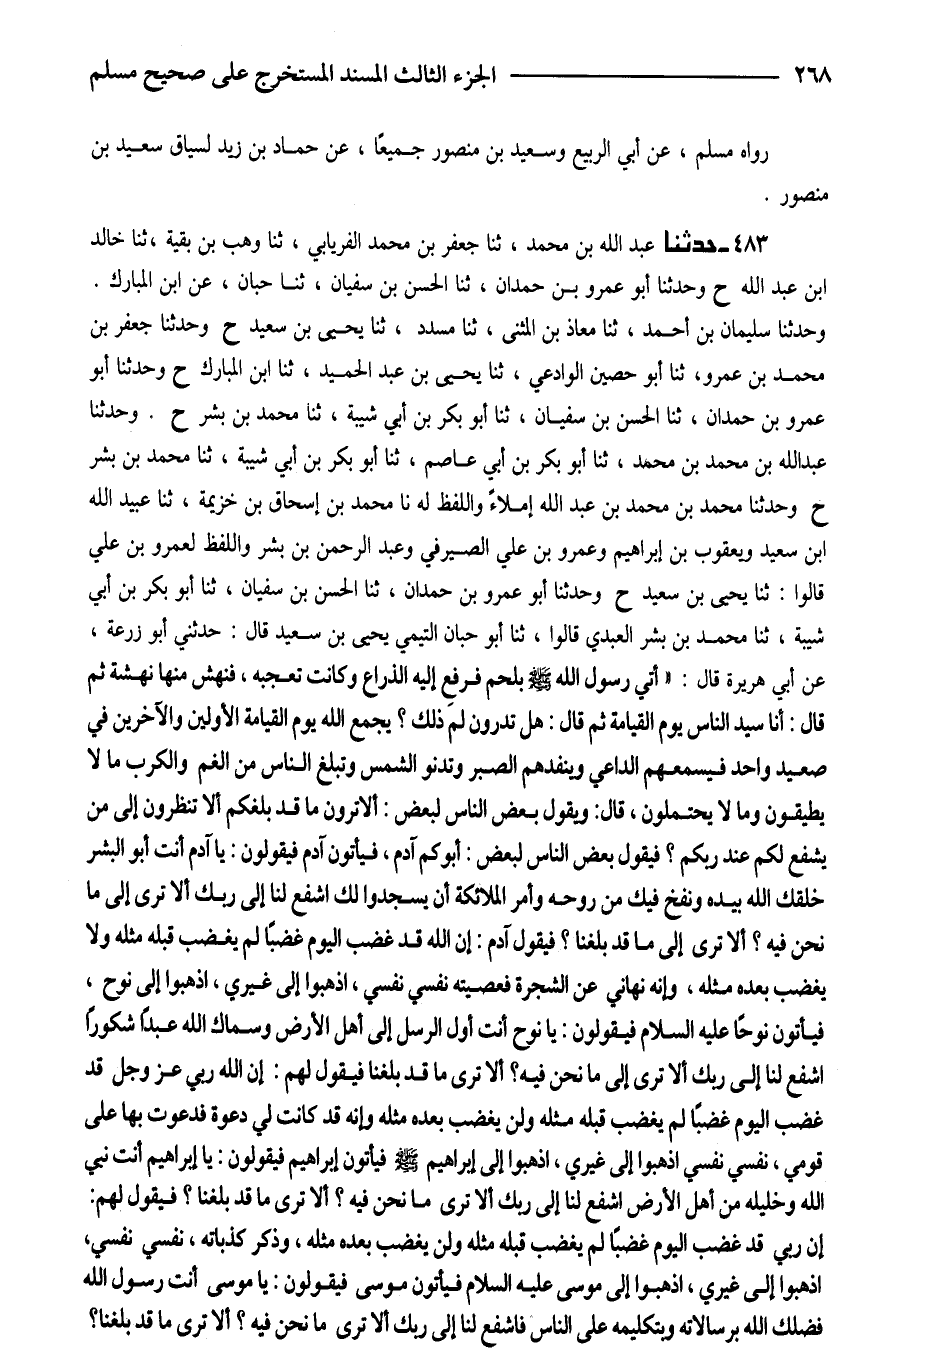 ٢٦٨ ــــــــــــــــــ الجزء الثالث المسند المستخرج على صحيح مسلم
رواه مسلم ، عن أبي الربيع وسعيد بن منصور جميعًا ، عن حماد بن زيد لسياق سعيد بن
منصور .
٤٨٣ـ حدثنا عبد الله بن محمد ، ثنا جعفر بن محمد الفريابي ، ثنا وهب بن بقية ، ثنا خالد
ابن عبد الله ح وحدثنا أبو عمرو بن حمدان ، ثنا الحسن بن سفيان ، ثنا حبان ، عن ابن المبارك .
وحدثنا سليمان بن أحمد ، ثنا معاذ بن المثنى ، ثنا مسدد ، ثنا يحيى بن سعيد ح وحدثنا جعفر بن
محمد بن عمرو، ثنا أبو حصين الوادعي ، ثنا يحيى بن عبد الحميد ، ثنا ابن المبارك ح وحدثنا أبو
عمرو بن حمدان ، ثنا الحسن بن سفيان ، ثنا أبو بكر بن أبي شيبة ، ثنا محمد بن بشر ح . وحدثنا
عبدالله بن محمد بن محمد ، ثنا أبو بكر بن أبي عاصم ، ثنا أبو بكر بن أبي شيبة ، ثنا محمد بن بشر
ح وحدثنا محمد بن محمد بن عبد الله إملاءً واللفظ له نا محمد بن إسحاق بن خزيمة ، ثنا عبيد الله
ابن سعيد ويعقوب بن إبراهيم وعمرو بن علي الصيرفي وعبد الرحمن بن بشر واللفظ لعمرو بن علي
قالوا : ثنا يحيى بن سعيد ح وحدثنا أبو عمرو بن حمدان ، ثنا الحسن بن سفيان ، ثنا أبو بكر بن أبي
شيبة ، ثنا محمد بن بشر العبدي قالوا ، ثنا أبو حبان التيمي يحيى بن سعيد قال : حدثني أبو زرعة ،
عن أبي هريرة قال : « أتي رسول الله ﷺ بلحم فرفع إليه الذراع وكانت تعجبه ، فنهش منها نهشة ثم
قال : أنا سيد الناس يوم القيامة ثم قال : هل تدرون لمَ ذلك ؟ يجمع الله يوم القيامة الأولين والآخرين في
صعيد واحد فيسمعهم الداعي وينفدهم الصبر وتدنو الشمس وتبلغ الناس من الغم والكرب ما لا
يطيقون وما لا يحتملون ، قال: ويقول بعض الناس لبعض : ألاترون ما قد بلغكم ألا تنظرون إلى من
يشفع لكم عند ربكم ؟ فيقول بعض الناس لبعض : أبوكم آدم ، فيأتون آدم فيقولون : يا آدم أنت أبو البشر
خلقك الله بيده ونفخ فيك من روحه وأمر الملائكة أن يسجدوا لك اشفع لنا إلى ربك ألا ترى إلى ما
نحن فيه ؟ ألا ترى إلى ما قد بلغنا ؟ فيقول آدم : إن الله قد غضب اليوم غضبًا لم يغضب قبله مثله ولا
يغضب بعده مثله ، وإنه نهاني عن الشجرة فعصيته نفسي نفسي ، اذهبوا إلى غيري ، اذهبوا إلى نوح ،
فيأتون نوحًا عليه السلام فيقولون : يا نوح أنت أول الرسل إلى أهل الأرض وسماك الله عبدًا شكورًا
اشفع لنا إلى ربك ألا ترى إلى ما نحن فيه؟ ألا ترى ما قد بلغنا فيقول لهم : إن الله ربي عز وجل قد
غضب اليوم غضبًا لم يغضب قبله مثله ولن يغضب بعده مثله وإنه قد كانت لي دعوة فدعوت بها على
قومي ، نفسي نفسي اذهبوا إلى غيري ، اذهبوا إلى إبراهيم ﷺ فيأتون إبراهيم فيقولون : يا إبراهيم أنت نبي
الله وخليله من أهل الأرض اشفع لنا إلى ربك ألا ترى ما نحن فيه ؟ ألا ترى ما قد بلغنا ؟ فيقول لهم:
إن ربي قد غضب اليوم غضبًا لم يغضب قبله مثله ولن يغضب بعده مثله ، وذكر كذباته ، نفسي نفسي،
اذهبوا إلى غيري ، اذهبوا إلى موسى عليه السلام فيأتون موسى فيقولون : يا موسى أنت رسول الله
فضلك الله برسالاته وبتكليمه على الناس فاشفع لنا إلى ربك ألا ترى ما نحن فيه ؟ ألا ترى ما قد بلغنا؟